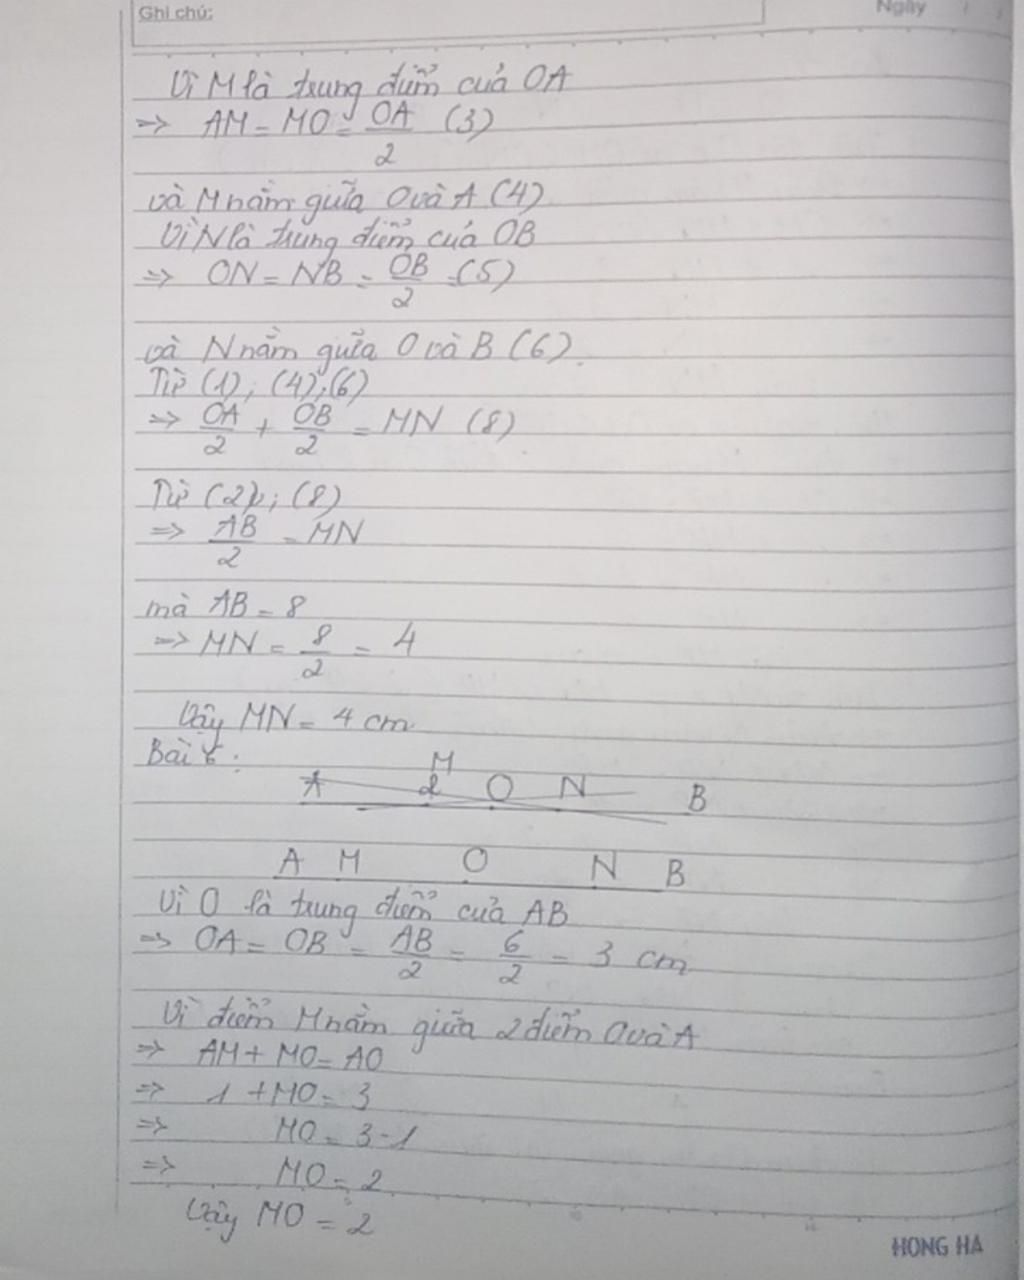 Ghi chú:
Ngày
Vì M là trung điểm của OA
=> AM = MO = OA/2 (3)
và M nằm giữa O và A (4)
Vì N là trung điểm của OB
=> ON = NB = OB/2 (5)
và N nằm giữa O và B (6).
Từ (1); (4); (6)
=> OA/2 + OB/2 = MN (8)
Từ (2); (8)
=> AB/2 = MN
mà AB = 8
=> MN = 8/2 = 4
Vậy MN = 4 cm
Bài :
M
A O N B
A M O N B
Vì O là trung điểm của AB
=> OA = OB = AB/2 = 6/2 = 3 cm
Vì điểm M nằm giữa 2 điểm O và A
=> AM + MO = AO
=> 1 + MO = 3
=> MO = 3 - 1
=> MO = 2
Vậy MO = 2
HONG HA